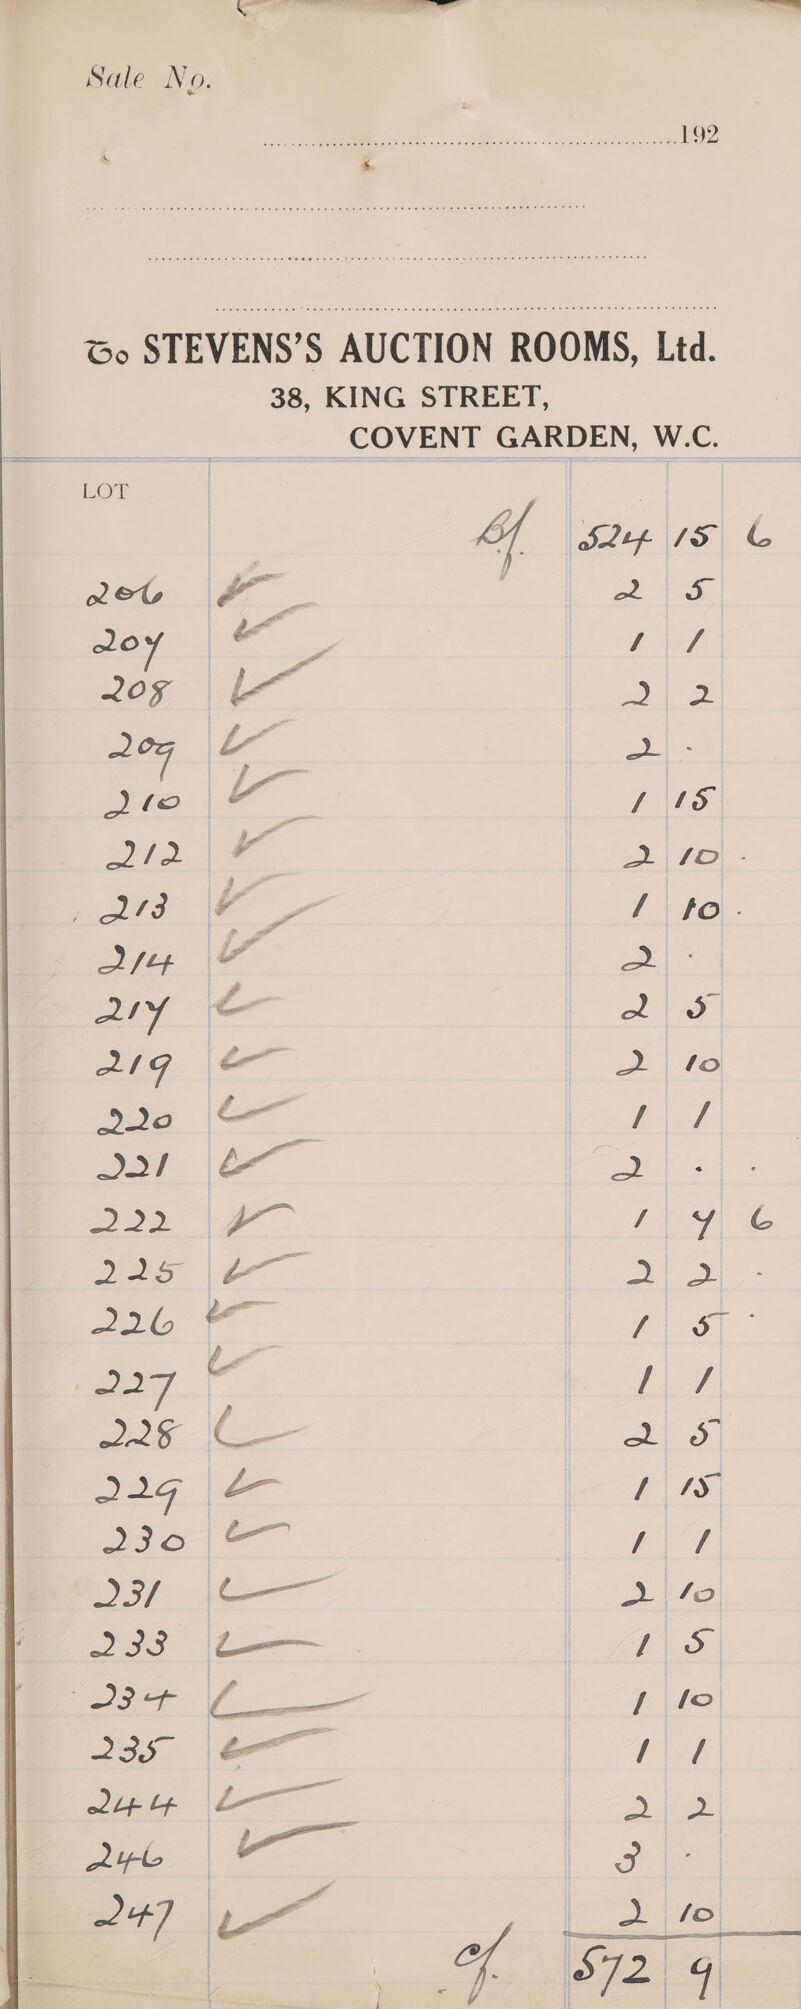 Sale No.
192
To STEVENS'S AUCTION ROOMS, Ltd.
38, KING STREET,
COVENT GARDEN, W.C.
LOT
Bf. 524 15 6
206 ✓ 2 5
207 ✓ 1 1
208 ✓ 2 2
209 ✓ 2 .
210 ✓ 1 15
212 ✓ 2 10 .
213 ✓ 1 10 .
214 ✓ 2 .
217 ✓ 2 5
219 ✓ 2 10
220 ✓ 1 1
221 ✓ 2 . .
222 ✓ 1 7 6
225 ✓ 2 2 .
226 ✓ 1 5 .
227 ✓ 1 1
228 ✓ 2 5
229 ✓ 1 15
230 ✓ 1 1
231 ✓ 2 10
233 ✓ 1 5
234 ✓ 1 10
235 ✓ 1 1
244 ✓ 2 2
246 ✓ 3 .
247 ✓ 2 10
cf. 572 9